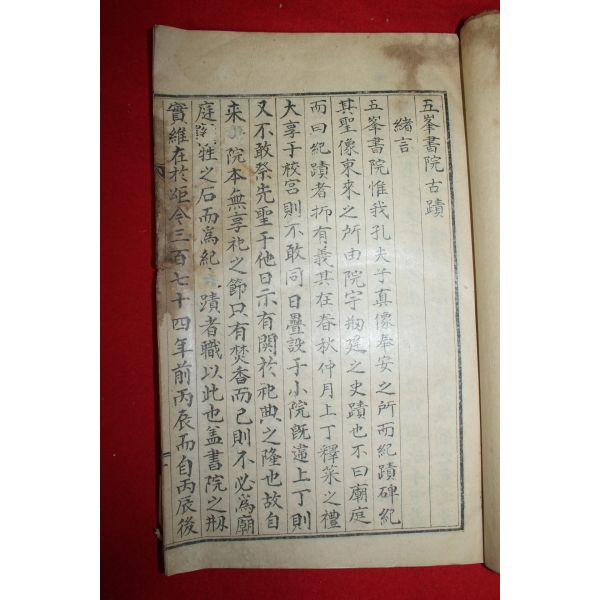 五峯書院古蹟
緒言
五峯書院惟我孔夫子真像奉安之所而紀蹟碑紀
其聖像東來之所由院宇刱建之史蹟也不曰廟庭
而曰紀蹟者抑有義其在春秋仲月上丁釋菜之禮
大享于校宮則不敢同日疊設于小院旣違上丁則
又不敢祭先聖于他日示有関於祀典之隆也故自
来 院本無享祀之節只有焚香而已則不必爲廟
庭 牲之石而爲紀 蹟者職以此也盖書院之刱
實維在於距今三百七十四年前丙辰而自丙辰後